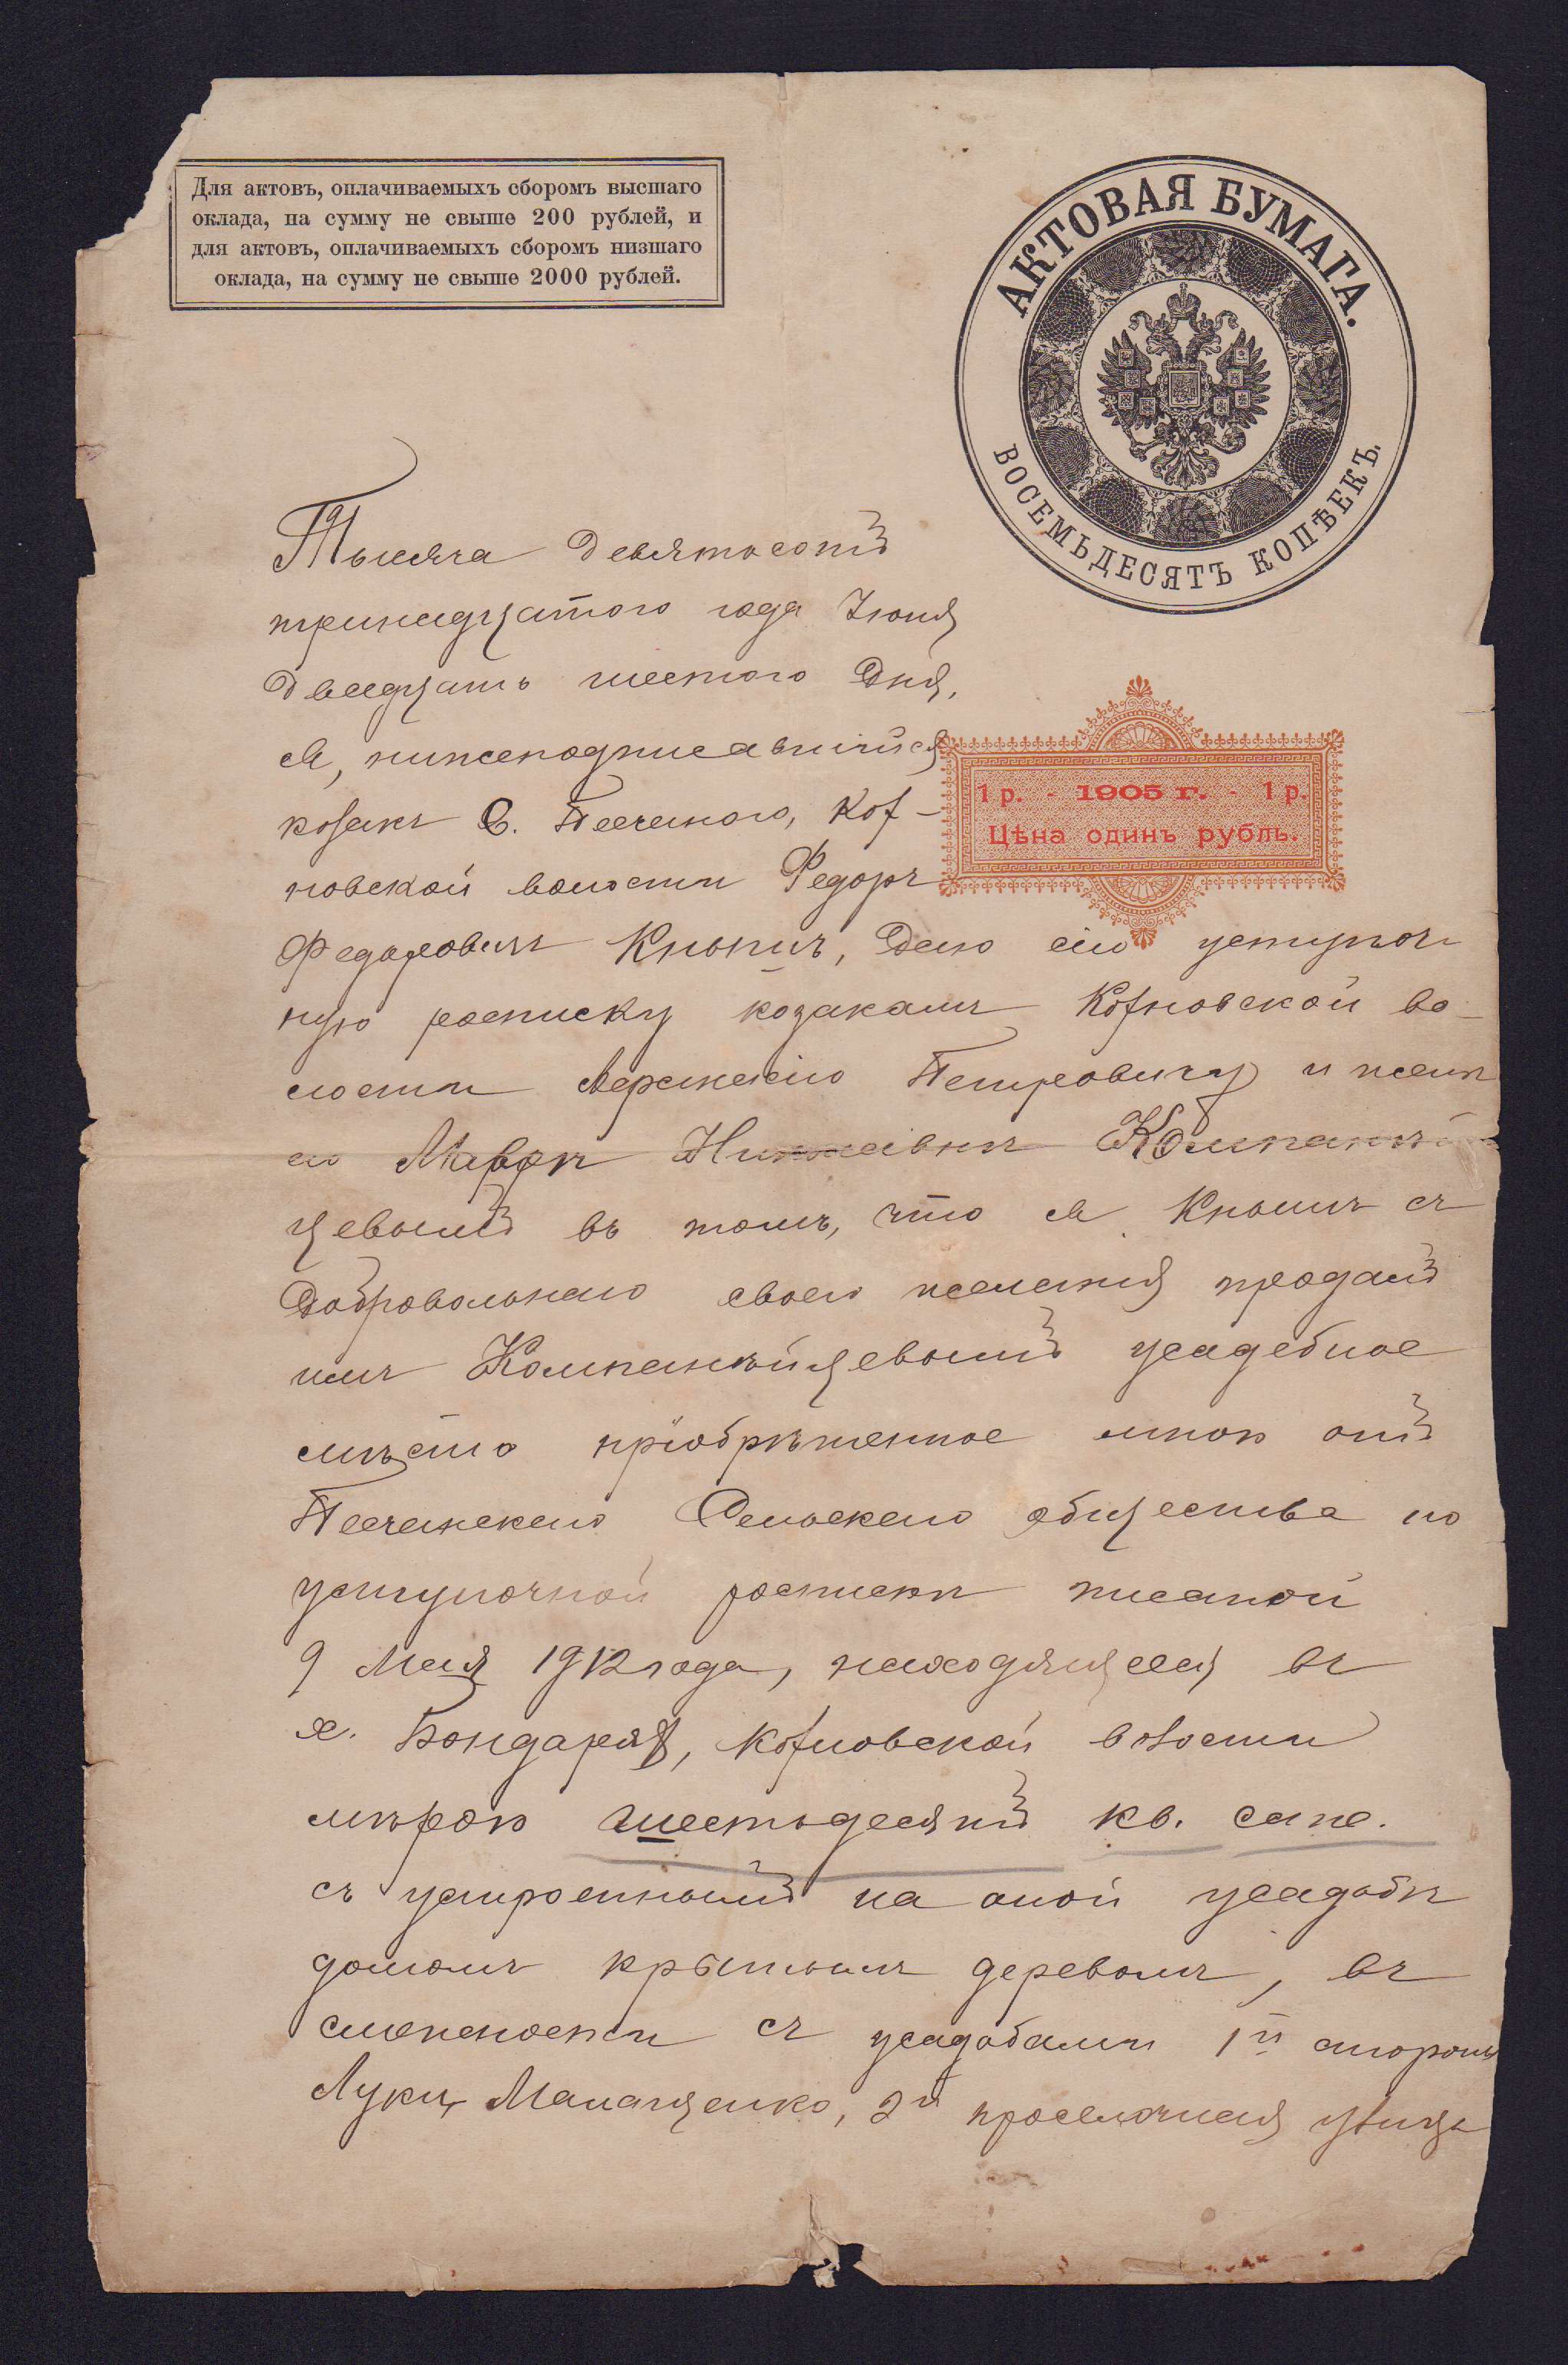 Для актовъ, оплачиваемыхъ сборомъ высшаго
оклада, на сумму не свыше 200 рублей, и
для актовъ, оплачиваемыхъ сборомъ низшаго
оклада, на сумму не свыше 2000 рублей.
АКТОВАЯ БУМАГА.
ВОСЕМЬДЕСЯТЪ КОПѢЕКЪ.
Тысяча девятьсотъ
тринадцатого года Іюня
двадцать шестого дня,
я, нижеподписавшійся
1 р. - 1905 г. - 1 р.
Цѣна одинъ рубль.
козакъ С. Песчаного,
новской волости Федоръ
Федоровичъ Кнышъ, даю сію уступоч
ную росписку козакамъ во-
лости Петровичу и женѣ
его Маврѣ Компанѣй
цевымъ въ томъ, что я Кнышъ съ
добровольнаго своего желанія продалъ
имъ Компанѣйцевымъ усадебное
мѣсто пріобрѣтенное мною отъ
Песчанскаго Сельскаго общества по
уступочной росписки писаной
9 Мая 1912 года, находящееся въ
х. Бондаря, волости
мѣрою шестьдесятъ кв. саж.
съ устроеннымъ на оной усадьбѣ
домомъ крытымъ деревомъ, въ
смежности съ усадьбами 1й стороны
Луки, 2й проселочная улица